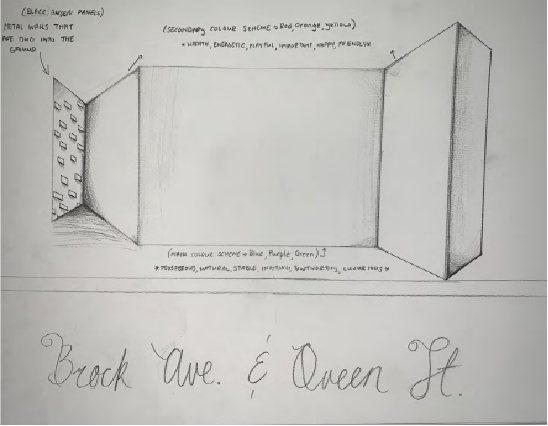 METAL WALLS THAT
ARE DUG INTO THE
GROUND
(SECONDARY COLOUR SCHEME = Red, Orange, Yellow)
WARMTH, ENERGETIC, PLAYFUL, IMPORTANT, HAPPY, FRIENDLY
(MAIN COLOUR SCHEME = Blue, Purple, Green)
NATURAL, STABLE, TRUSTWORTHY, LUXURIOUS
Brock Ave. & Queen St.